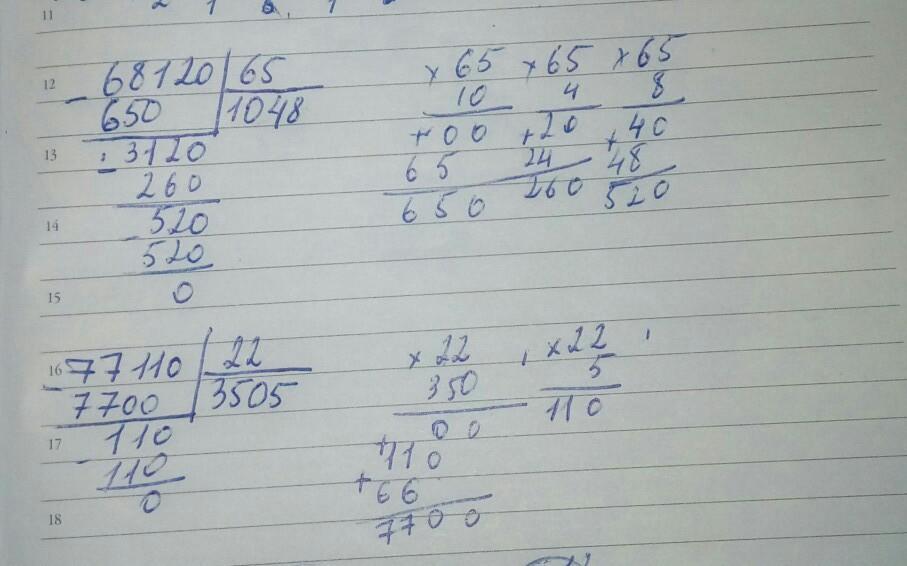 11
12 - 68120 | 65 × 65 × 65 × 65
650 | 1048 10 4 8
13 - 3120 + 00 + 20 + 40
260 65 24 48
14 - 520 650 260 520
520
15 0
16 - 77110 | 22 × 22 , × 22 ,
7700 | 3505 350 5
17 - 110 00 110
110 + 110
0 + 66
18 7700